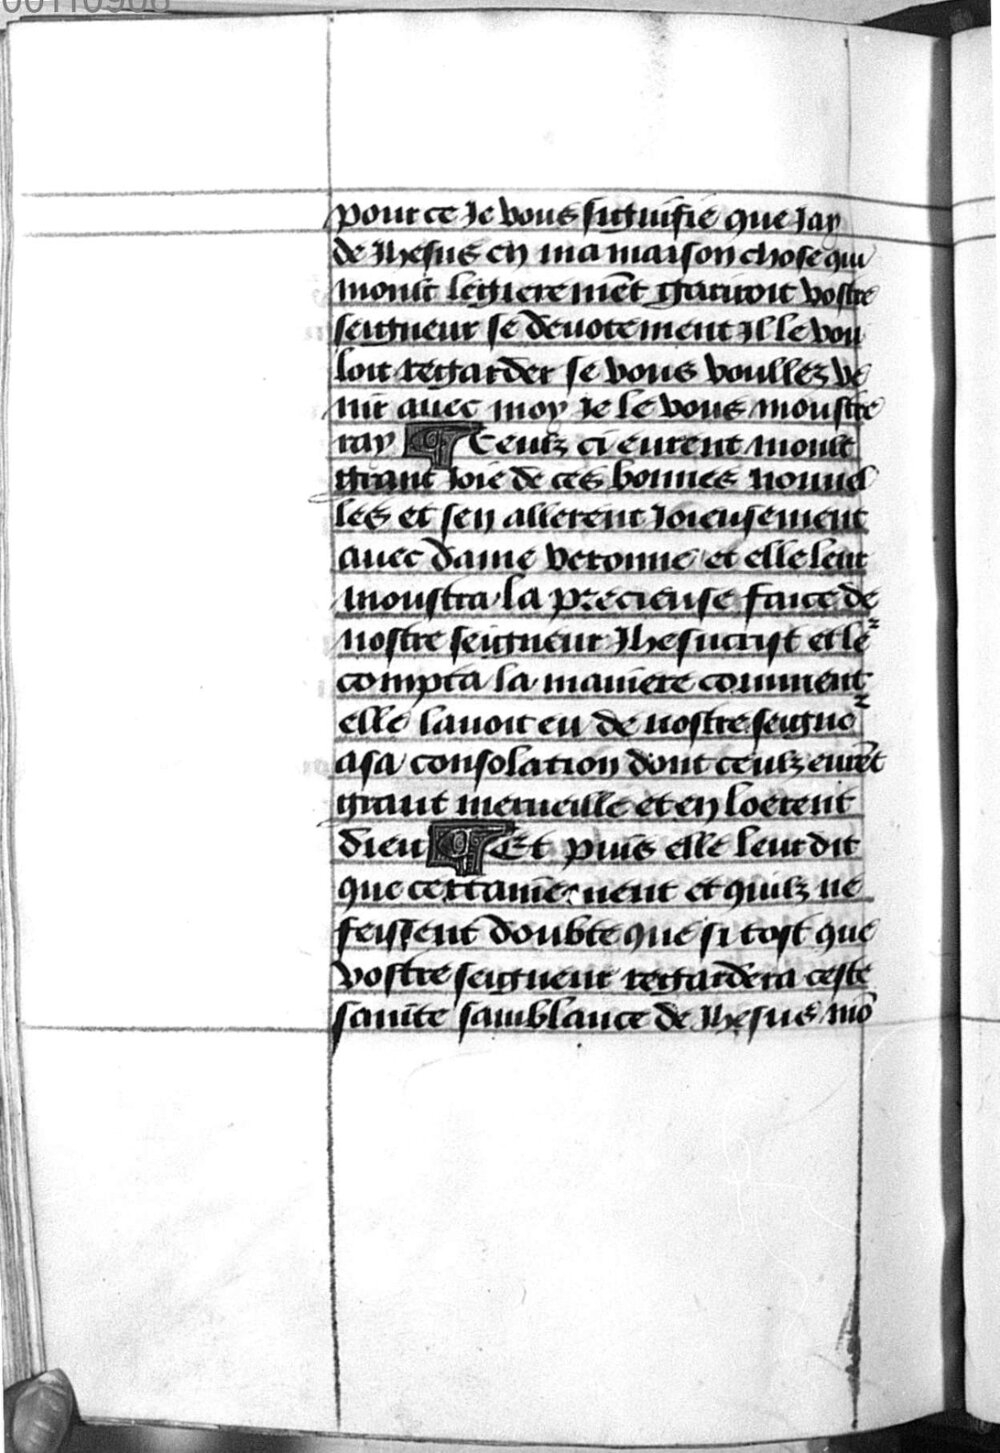 00110908
pour ce Je vous signifie que Jay
de Jhesus en ma maison chose qui
moult legierement gariroit vostre
seigneur se deuotement Il le vou
loit regarder se vous voullez ve
nir auec moy Je le vous moustre
ray ¶ Ceulz ci eurent moult
grant Joie de ces bonnes nouuel
les et sen allerent Joieusement
auec dame veronne et elle leur
moustra la precieuse face de
nostre seigneur Jhesucrist et le
compta la maniere comment
elle lauoit eu de nostre seigne
a sa consolation dont ceulz eurẽt
grant merueille et en loerent
dieu ¶ Et puis elle leur dit
que certainement et quilz ne
feissent doubte que si tost que
vostre seigneur regardera ceste
sainte samblance de Jhesus mõ